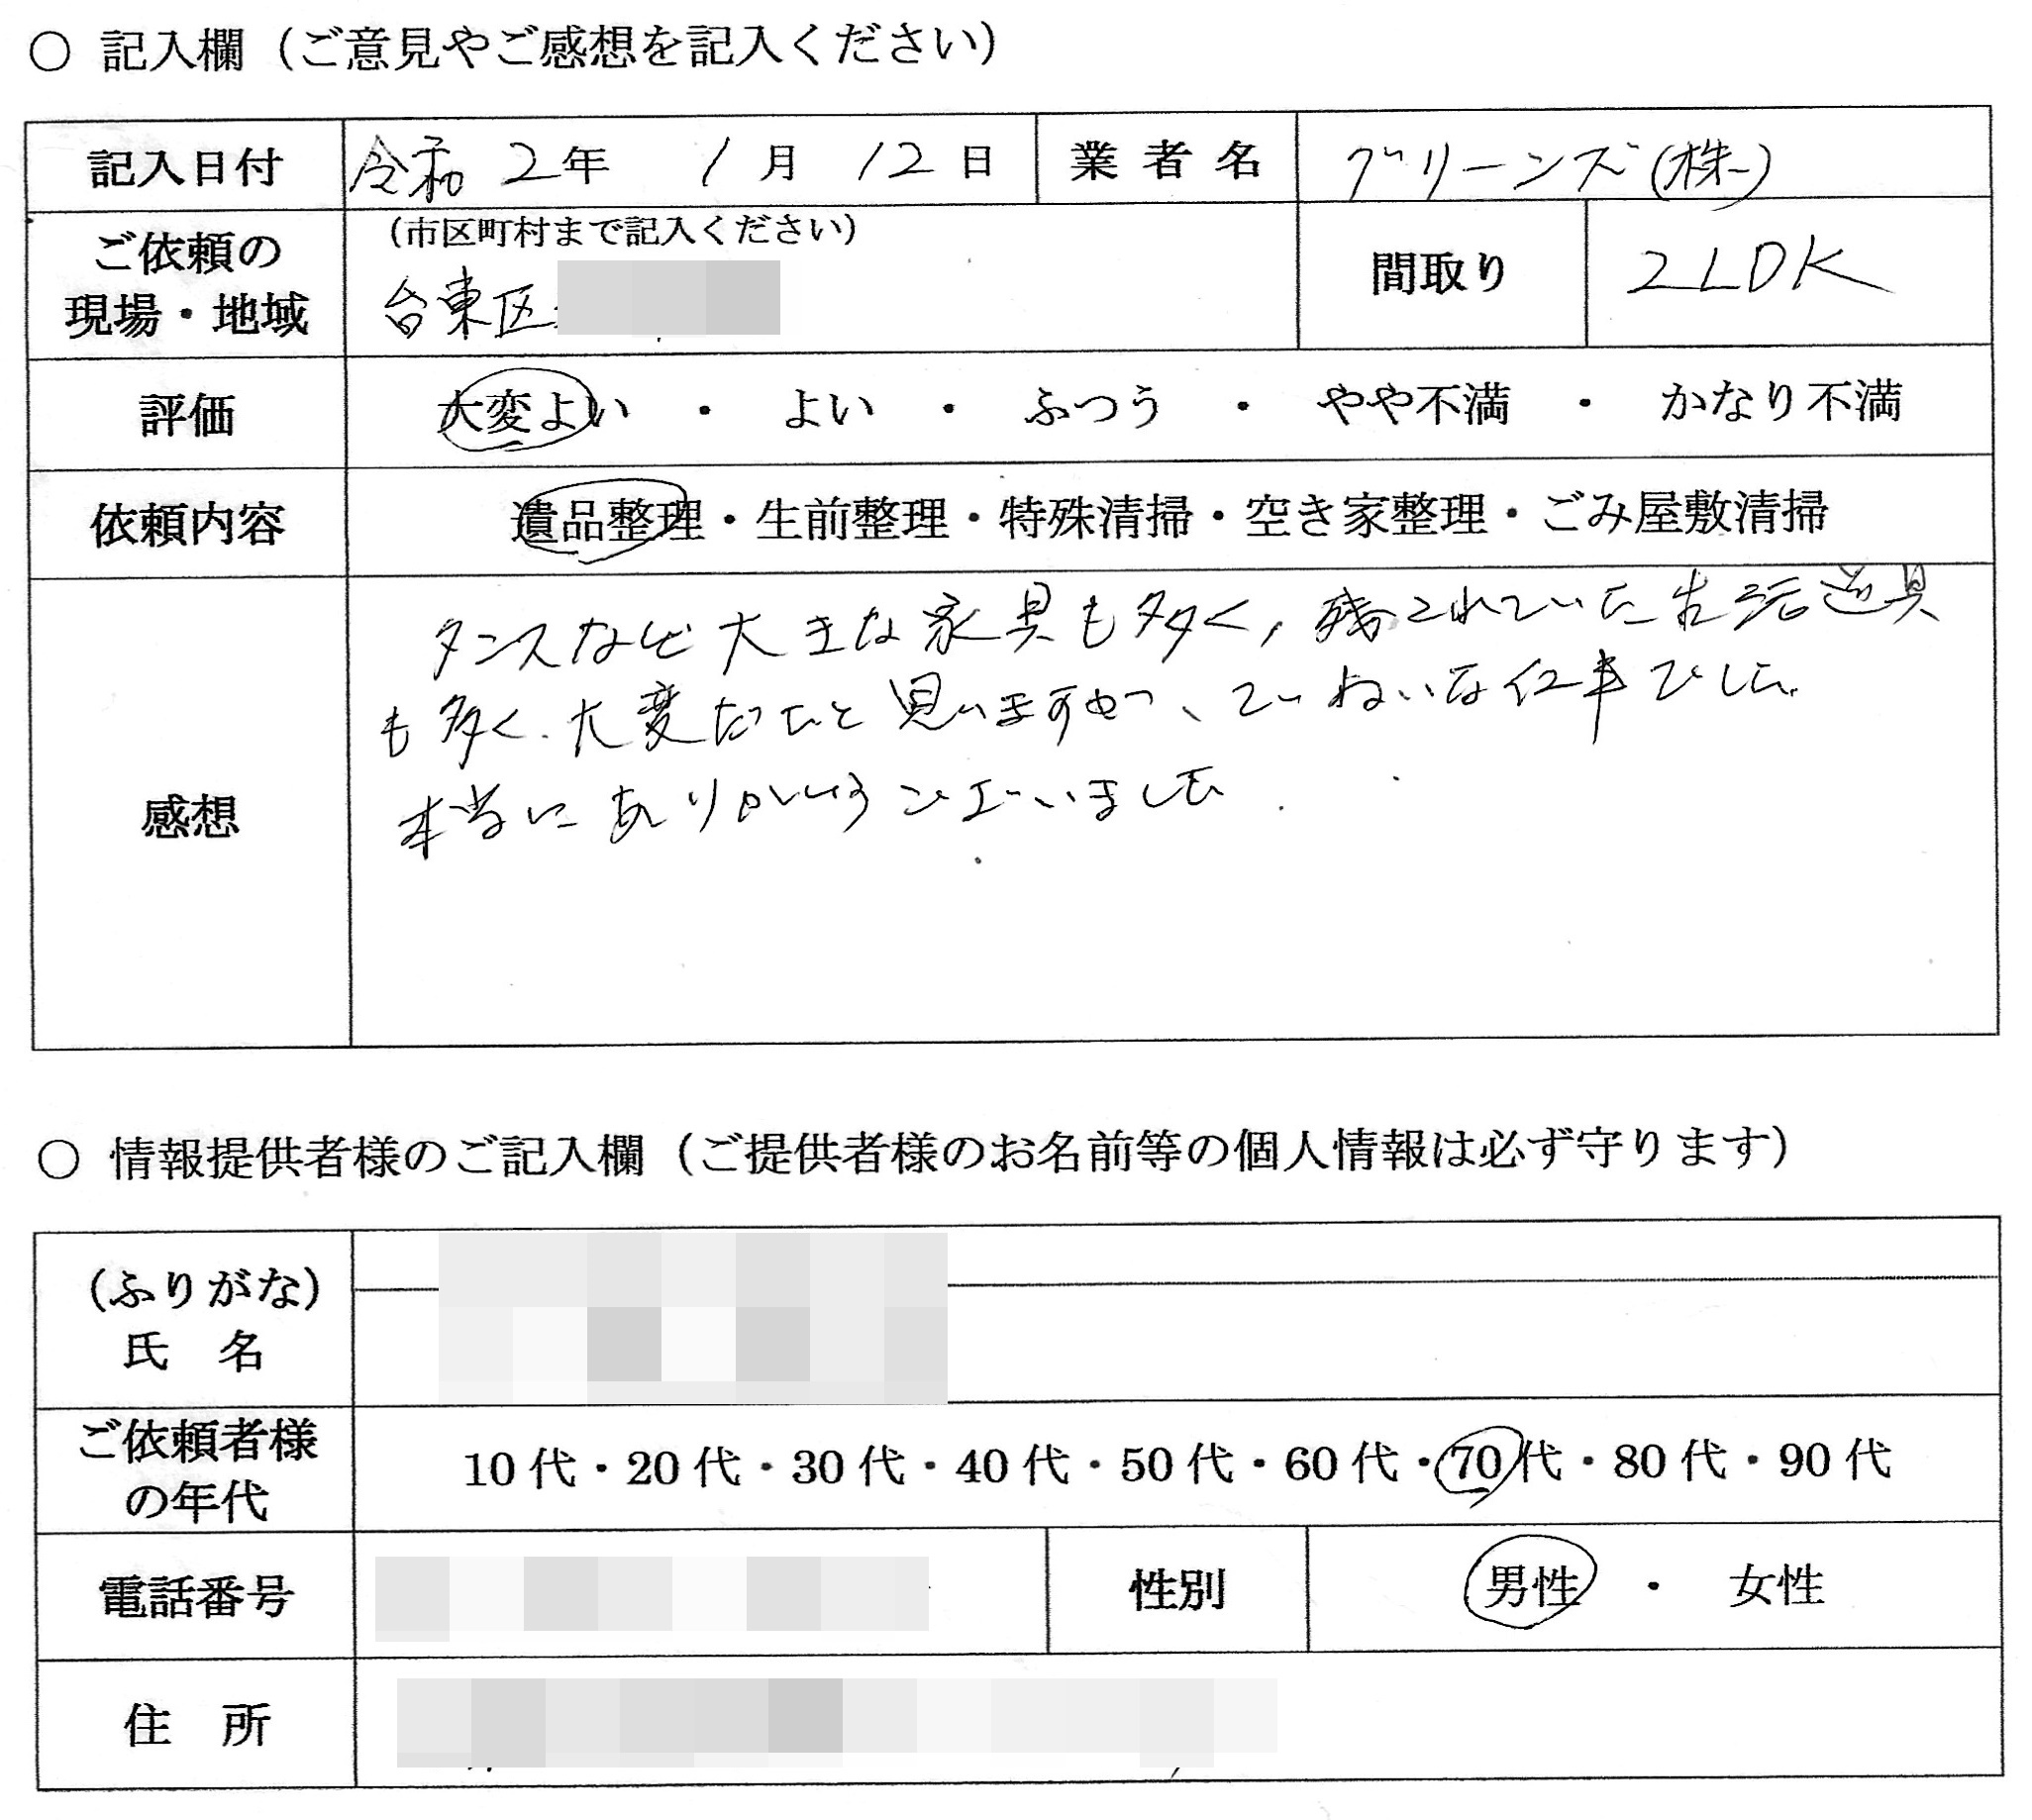 ○ 記入欄（ご意見やご感想を記入ください）
記入日付 令和 2年 1月 12日 業者名 グリーンズ(株)
ご依頼の現場・地域 (市区町村まで記入ください) 台東区 間取り 2LDK
評価 大変よい ・ よい ・ ふつう ・ やや不満 ・ かなり不満
依頼内容 遺品整理・生前整理・特殊清掃・空き家整理・ごみ屋敷清掃
感想
タンスなど大きな家具も多く、残されていた生活道具
も多く、大変だったと思いますが、ていねいな仕事でした。
本当にありがとうございました.
○ 情報提供者様のご記入欄（ご提供者様のお名前等の個人情報は必ず守ります）
(ふりがな)
氏 名
ご依頼者様の年代 10代・20代・30代・40代・50代・60代・70代・80代・90代
電話番号 性別 男性 ・ 女性
住 所